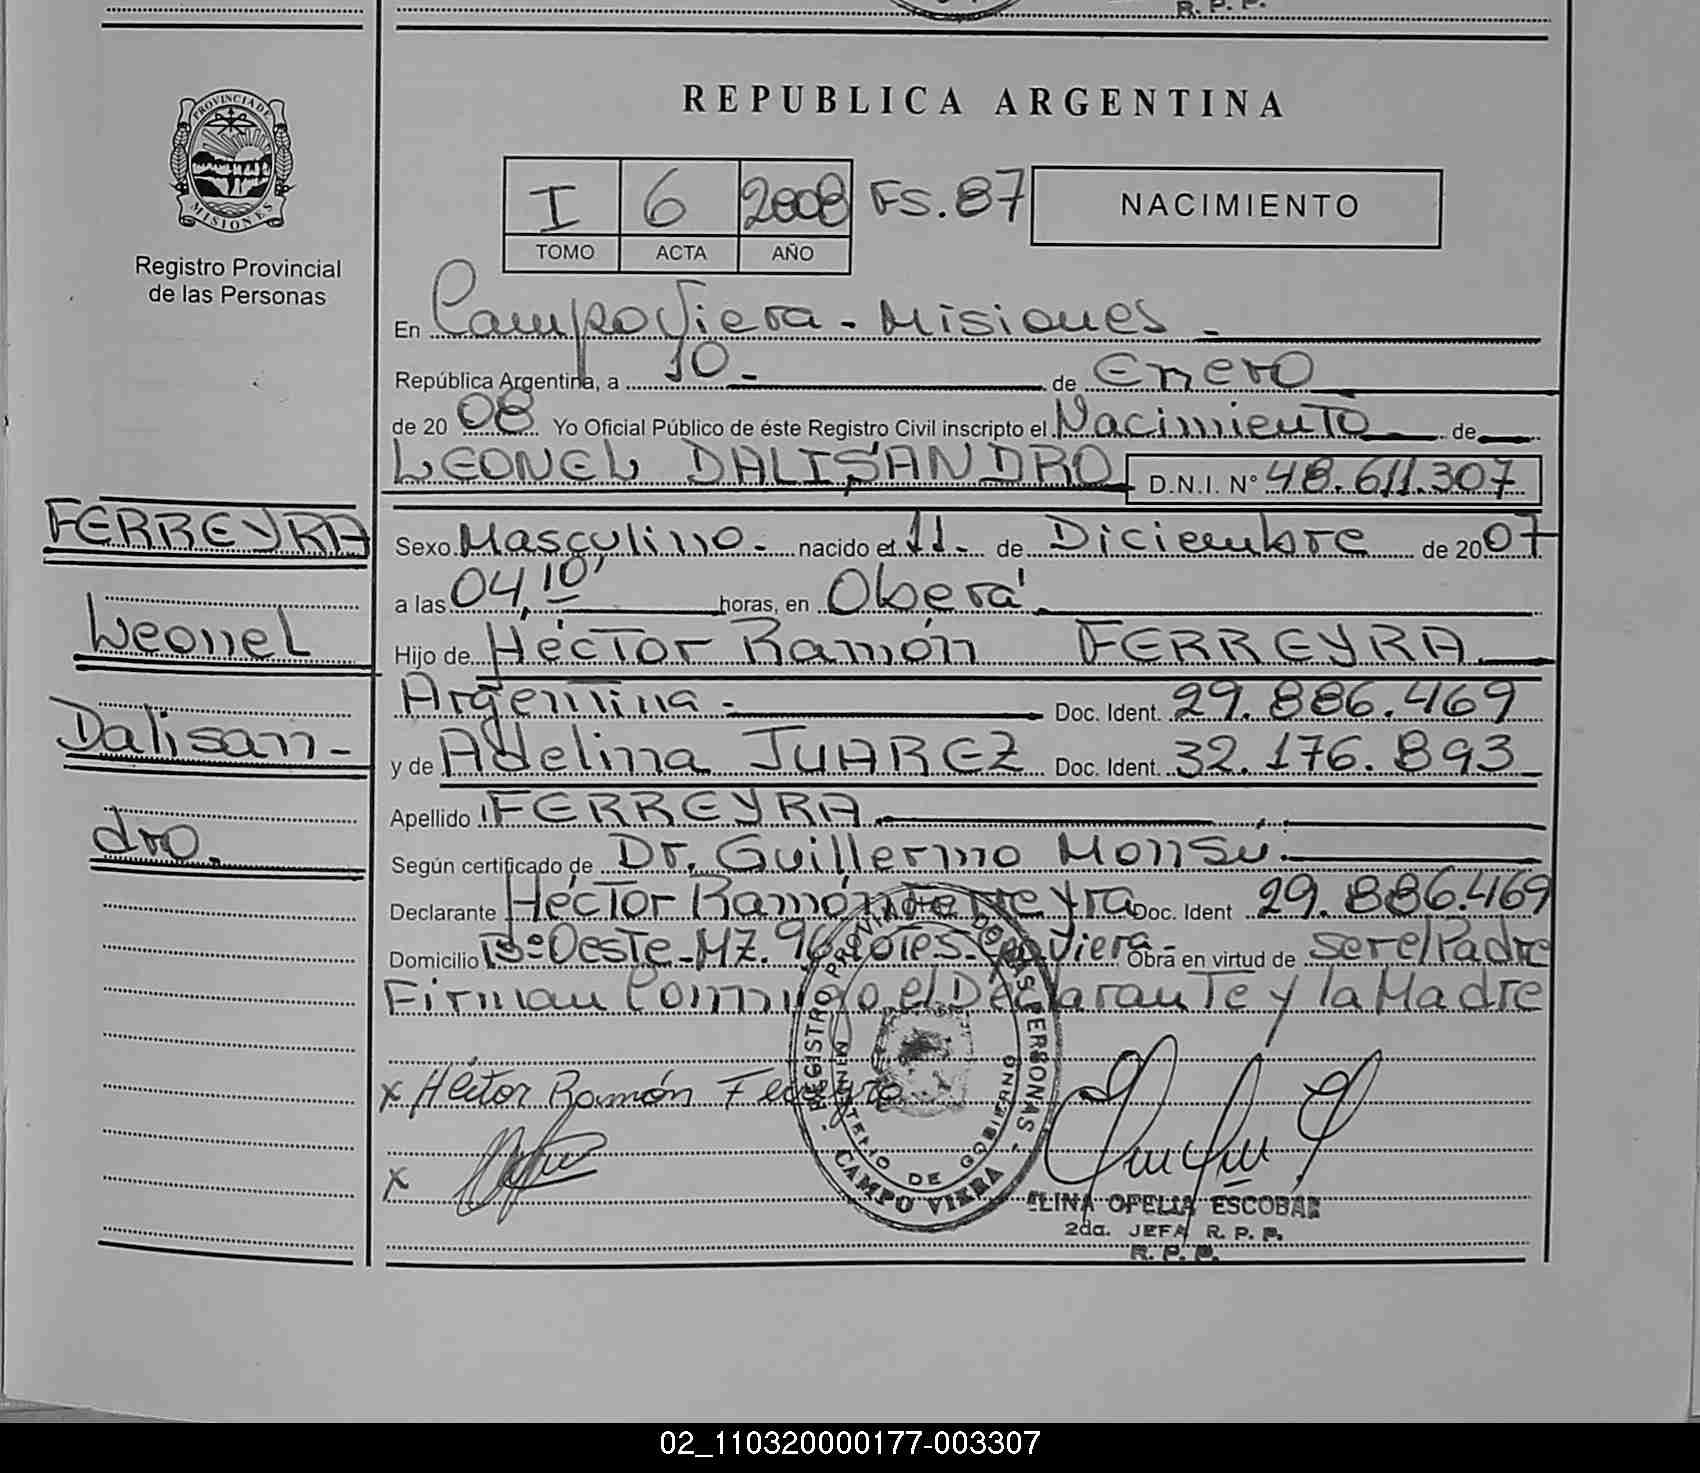 R. P. P.
PROVINCIA DE
MISIONES
Registro Provincial
de las Personas
REPUBLICA ARGENTINA
I 6 2008 FS. 87 NACIMIENTO
TOMO ACTA AÑO
En Campo Viera - Misiones -
República Argentina, a 10 - de Enero
de 20 08 Yo Oficial Público de éste Registro Civil inscripto el Nacimiento de
LEONEL DALISANDRO D.N.I. N° 48.611.307
FERREYRA
Leonel
Dalisan-
dro.
Sexo Masculino - nacido el 11 - de Diciembre de 20 07
a las 04,10' horas, en Oberá
Hijo de Héctor Ramón FERREYRA
Argentina - Doc. Ident. 29.886.469
y de Adelina JUAREZ Doc. Ident. 32.176.893
Apellido FERREYRA
Según certificado de Dr. Guillermo Monsu.
Declarante Héctor Ramón Ferreyra Doc. Ident 29.886.469
Domicilio B° Oeste - MZ. 96 Viera - Obra en virtud de ser el Padre
Firman Conmigo el Declarante y la Madre
x Héctor Ramón Ferreyra
x
REGISTRO PROVINCIAL DE LAS PERSONAS
MINISTERIO DE GOBIERNO
CAMPO VIERA
ELINA OFELIA ESCOBAR
2da. JEFA R. P. P.
R. P. P.
02_110320000177-003307